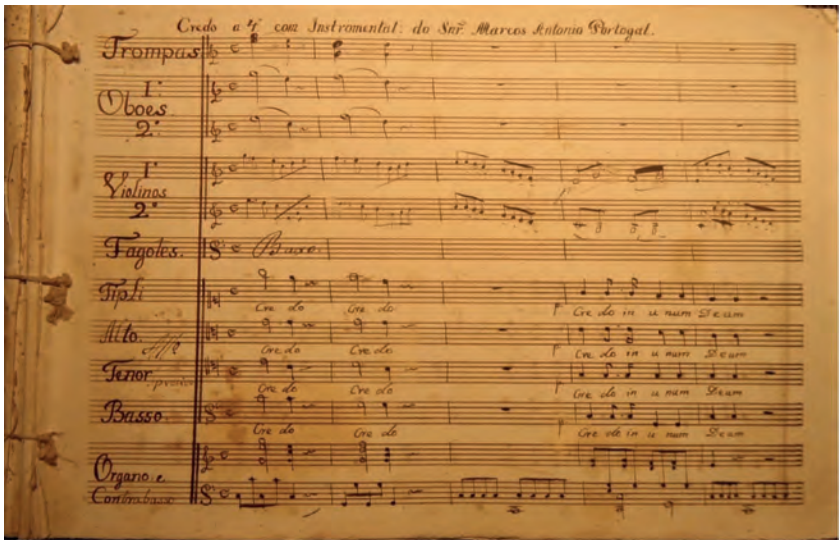 Credo a 4º com Instrumental: do Snr. Marcos Antonio Portogal.
Trompas
1º
Oboes.
2º
1º
Violinos
2º
Fagotes. Baxo.
Tipli
Cre do Cre do Cre do in u num Deum
Alto.
Cre do Cre do Cre do in u num Deum
Tenor
Cre do Cre do Cre do in u num Deum
Basso.
Cre do Cre do Cre do in u num Deum
Organo. e.
Contrabasso